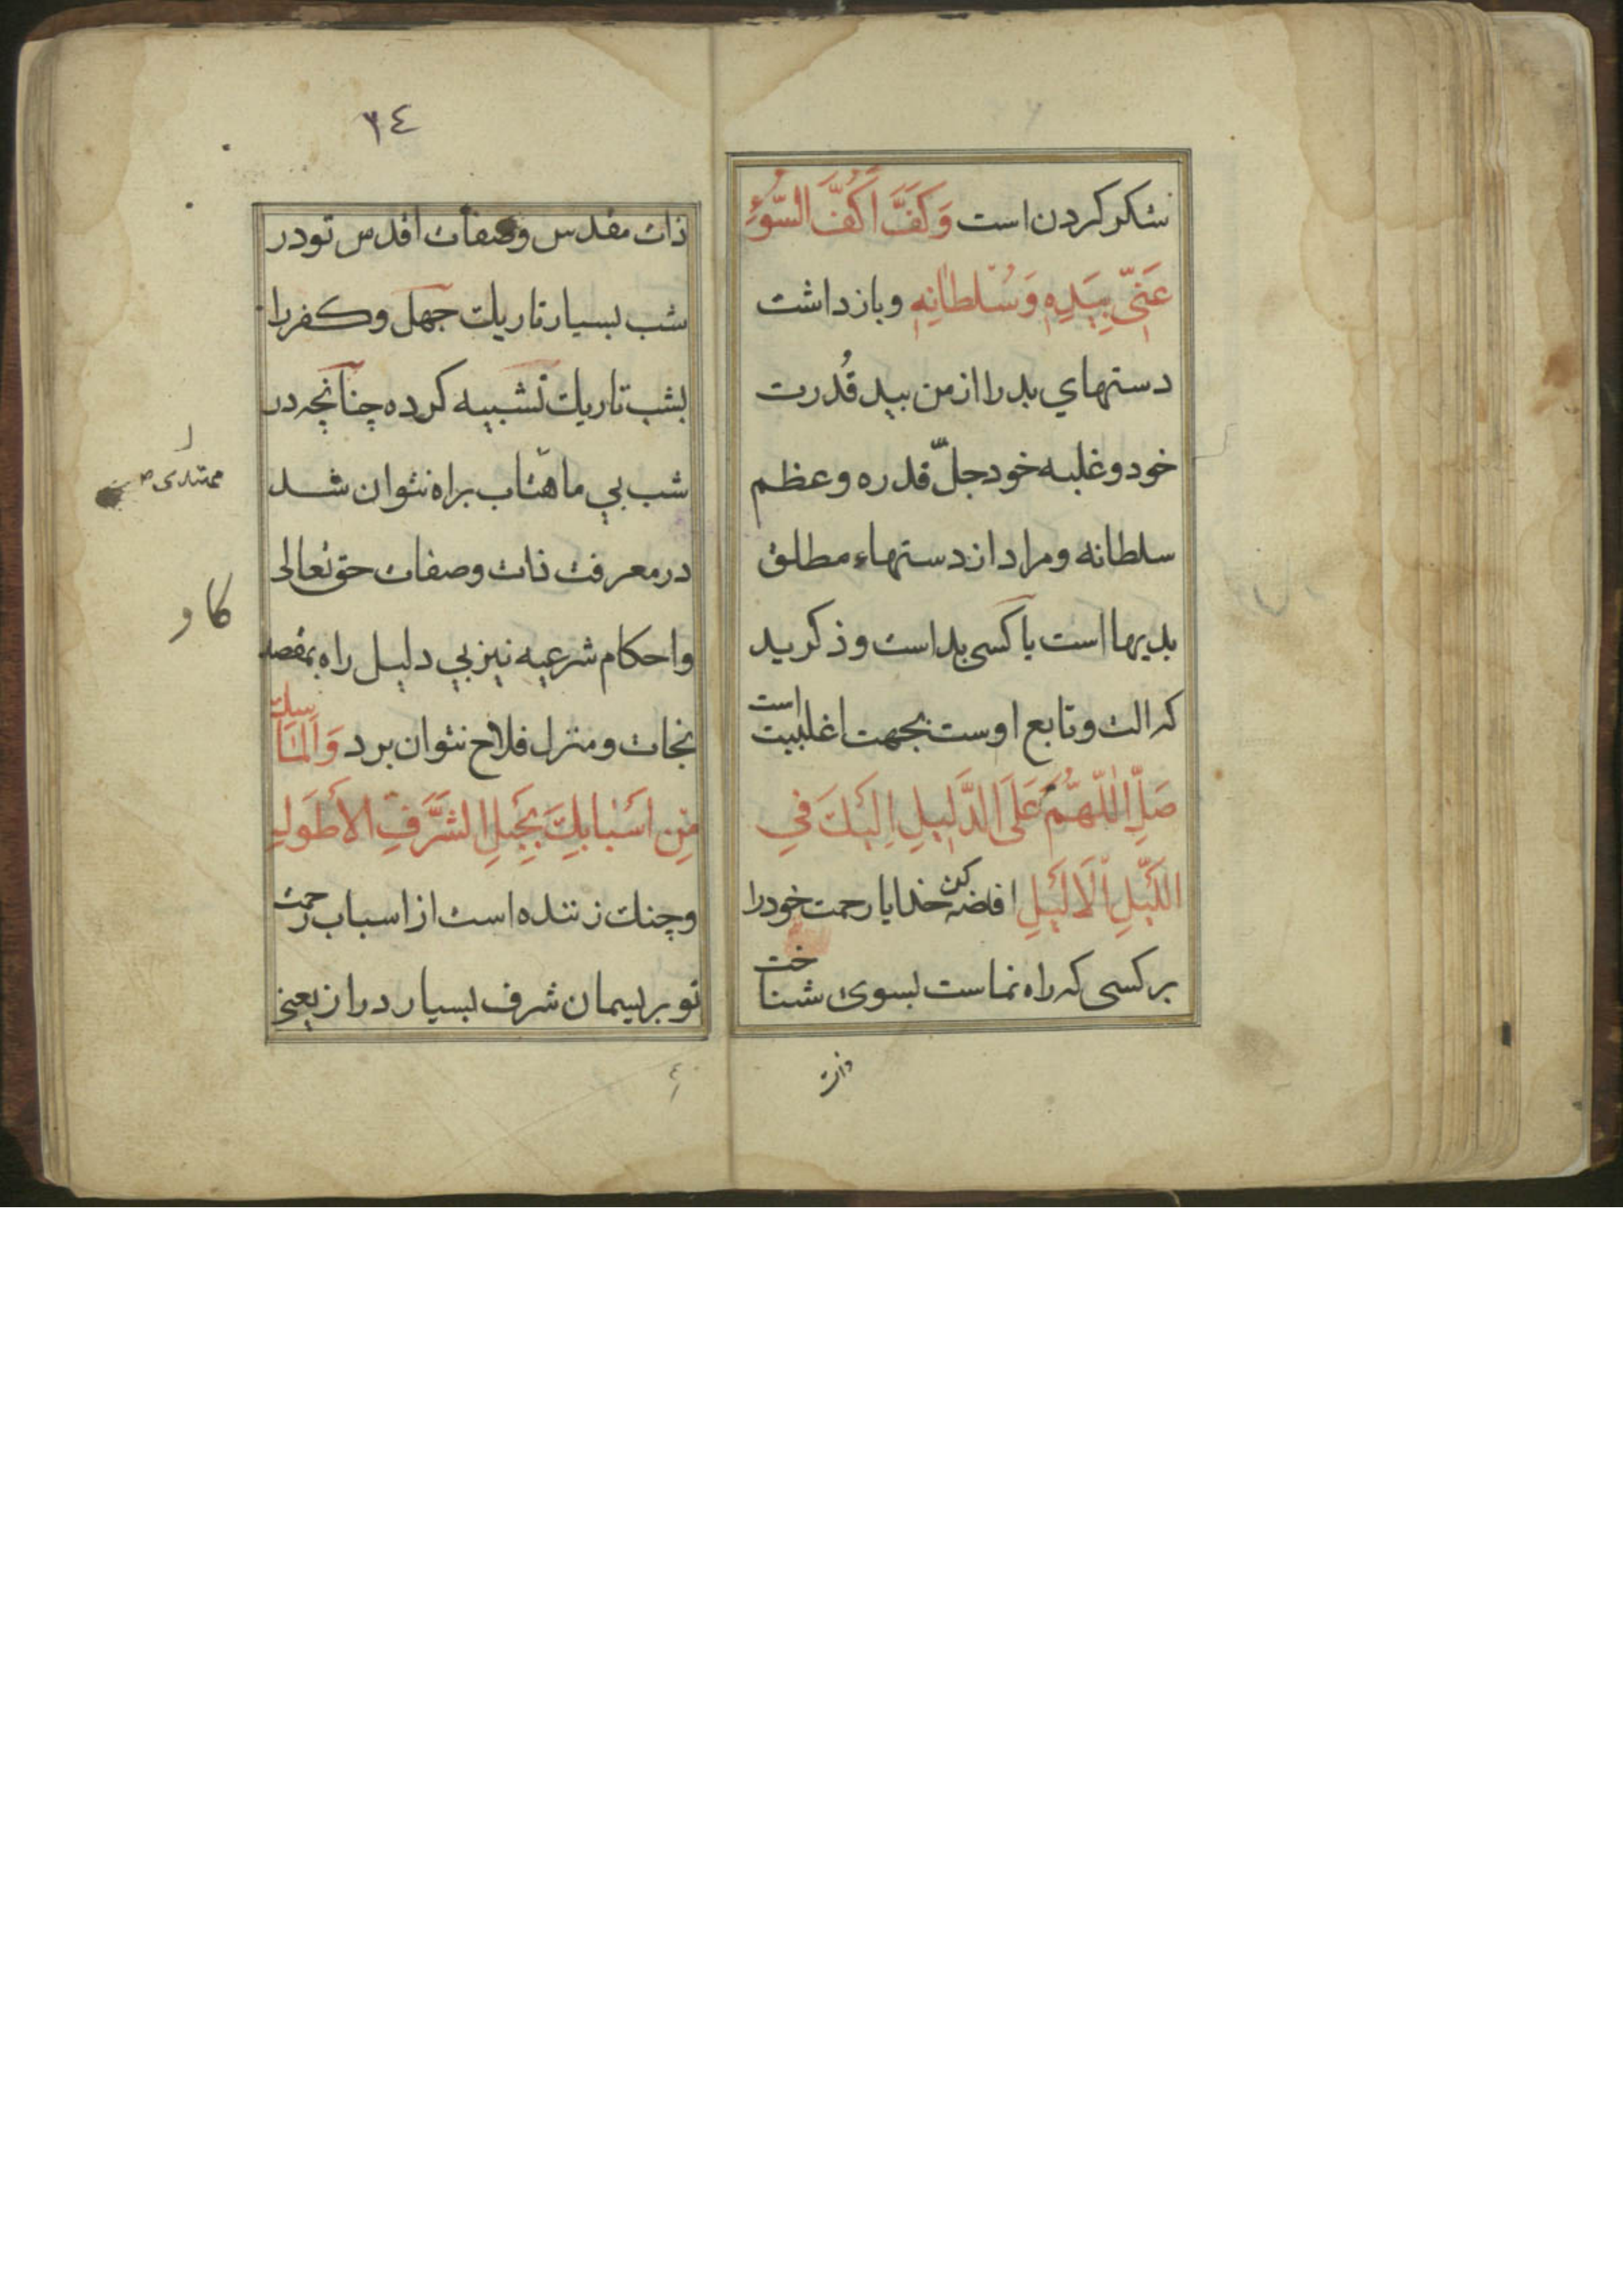 شکر کردن است وَکَفَّ اَکُفَّ السُّوءِ
عَنِّي بِيَدِهِ وَسُلطانِهِ وبازداشت
دستهاي بد را از من بید قُدرت
خود وغلبه خود جلّ قدره وعظم
سلطانه ومراد از دستهاء مطلق
بدیها است یا کسی بد است و ذکر ید
که الت وتابع اوست بجهت اغلبیت است
صَلِّ اللّٰهُمَّ عَلَی الدَّلِیلِ اِلَیْكَ فِي
اللَّیْلِ الْاَلْیَلِ افاضه کن خدایا رحمت خود را
بر کسی که راه نماست بسوی شناخت
ذات
٣٤
ذات مقدس وصفات اقدس تو در
شب بسیار تاریك جهل وکفر را
بشب تاریك تشبیه کرده چنانچه در
شب بي ماهتاب براه نتوان شد
در معرفت ذات وصفات حق تعالی
واحکام شرعیه نیز بي دلیل راه بمقصد
نجات ومنزل فلاح نتوان برد وَالمَاسِكِ
مِن اَسْبَابِكَ بِحَبْلِ الشَّرَفِ الاَطْوَلِ
وچنك زننده است از اسباب رحمت
تو بریسمان شرف بسیار دراز یعنی